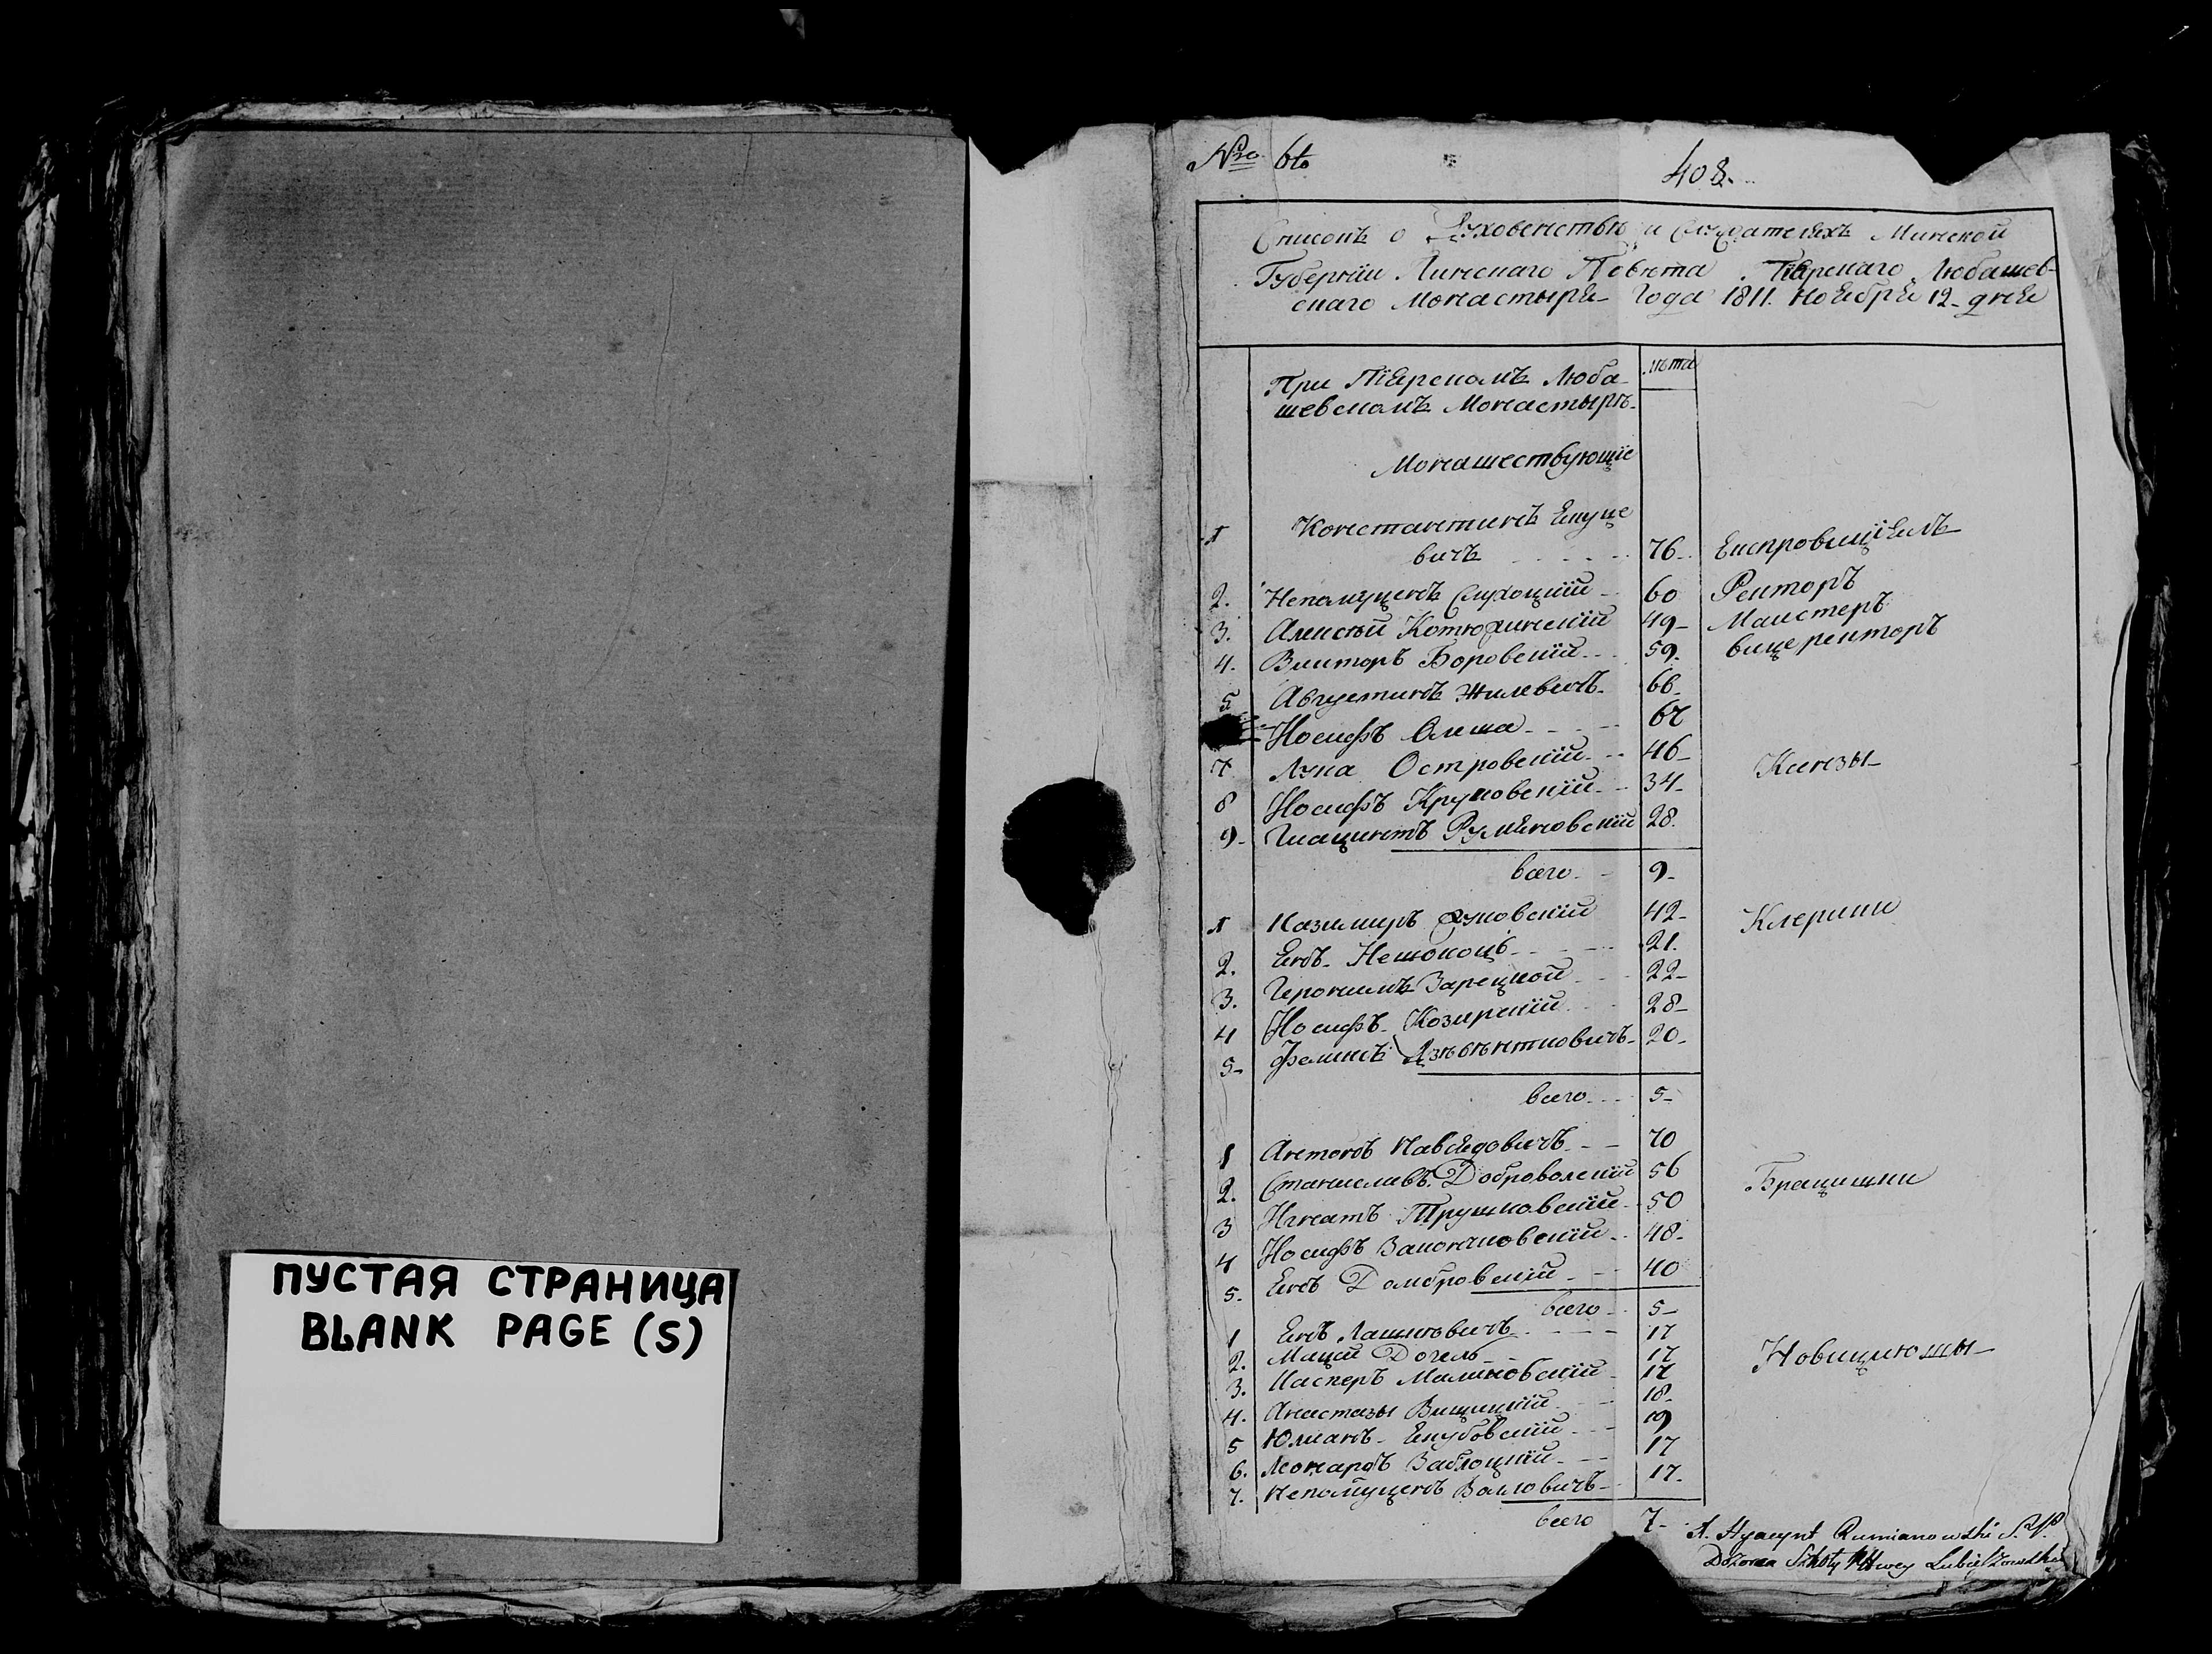 ПУСТАЯ СТРАНИЦА
BLANK PAGE (S)
Nro 66
408.
Списокъ о Духовенствѣ и Минской
Губернїи Пинскаго Повѣта Пїярскаго Любашев-
скаго Монастыря Года 1811. Ноября 12 дня
При Пїярскомъ Люба-
шевскомъ Монастырѣ. лѣта
Монашествующїе
1 Константинъ Януце
вичъ 76 Експровинцїялъ
2. Непомуценъ Сухоцкїй 60 Ректоръ
3. Алексѣй 49 Маистеръ
4. Викторъ Боровскїй 59. вице ректоръ
5 Августинъ Жилевичъ 66
Иосифъ Олеша 67
7 Лука Островскїй 46 Кснзы
8 Иосифъ Круковскїй 34
9 Гиацинтъ Румяновскїй 28.
всего 9
1 Казимиръ Жуковскїй 42 Клерики
2. Янъ 21.
3. Геронимъ Зарецкой 22
4 Иосифъ Козирскїй 28
5 Феликсъ Дзѣвѣнтковичъ 20
всего 5
1 Антонъ Навядовичъ 70
2. Станиславъ Доброволскїй 56 Брацишки
3 Игнатъ Трушковскїй 50
4 Иосифъ 48
5. Янъ Домбровскїй 40
всего 5
1 Янъ Лашкевичъ 17
2. Мацей Догель 17 Новицїюшы
3. Касперъ Малиновскїй 17
4. Анастазы 18
5 Юлианъ Якубовскїй 19
6. Леонардъ Заблоцкїй 17
7. Непомуценъ Воловичъ 17.
всего 7
X. Hyacynt Rumianowski S. P.
Dozorca Szkoły Lubieszowskiey